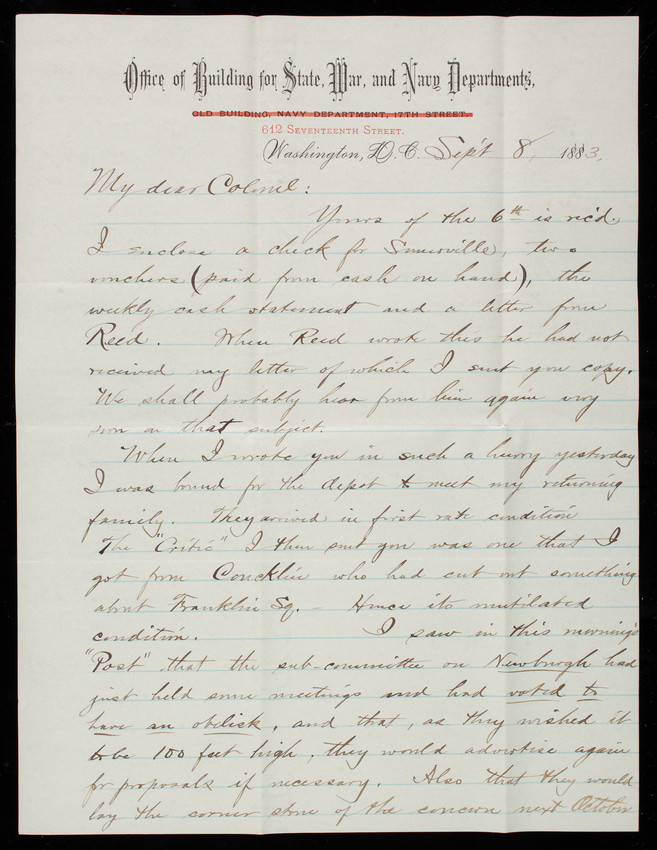 Office of Building for State, War, and Navy Departments,
OLD BUILDING, NAVY DEPARTMENT, 17TH STREET.
612 SEVENTEENTH STREET.
Washington, D. C. Sept 8, 1883.
My dear Colonel:
Yours of the 6th is rec'd.
I enclose a check for Somerville, two
vouchers (paid from cash on hand), the
weekly cash statement and a letter from
Reed. When Reed wrote this he had not
received my letter of which I sent you copy.
We shall probably hear from him again very
soon on that subject.
When I wrote you in such a hurry yesterday
I was bound for the depot to meet my returning
family. They arrived in first rate condition
The "Critic" I then sent you was one that I
got from Concklin who had cut out something
about Franklin Sq. — Hence its mutilated
condition. I saw in this morning's
"Post" that the sub-committee on Newburgh had
just held some meetings and had voted to
have an obelisk, and that, as they wished it
to be 100 feet high, they would advertise again
for proposals if necessary. Also that they would
lay the corner stone of the concern next October